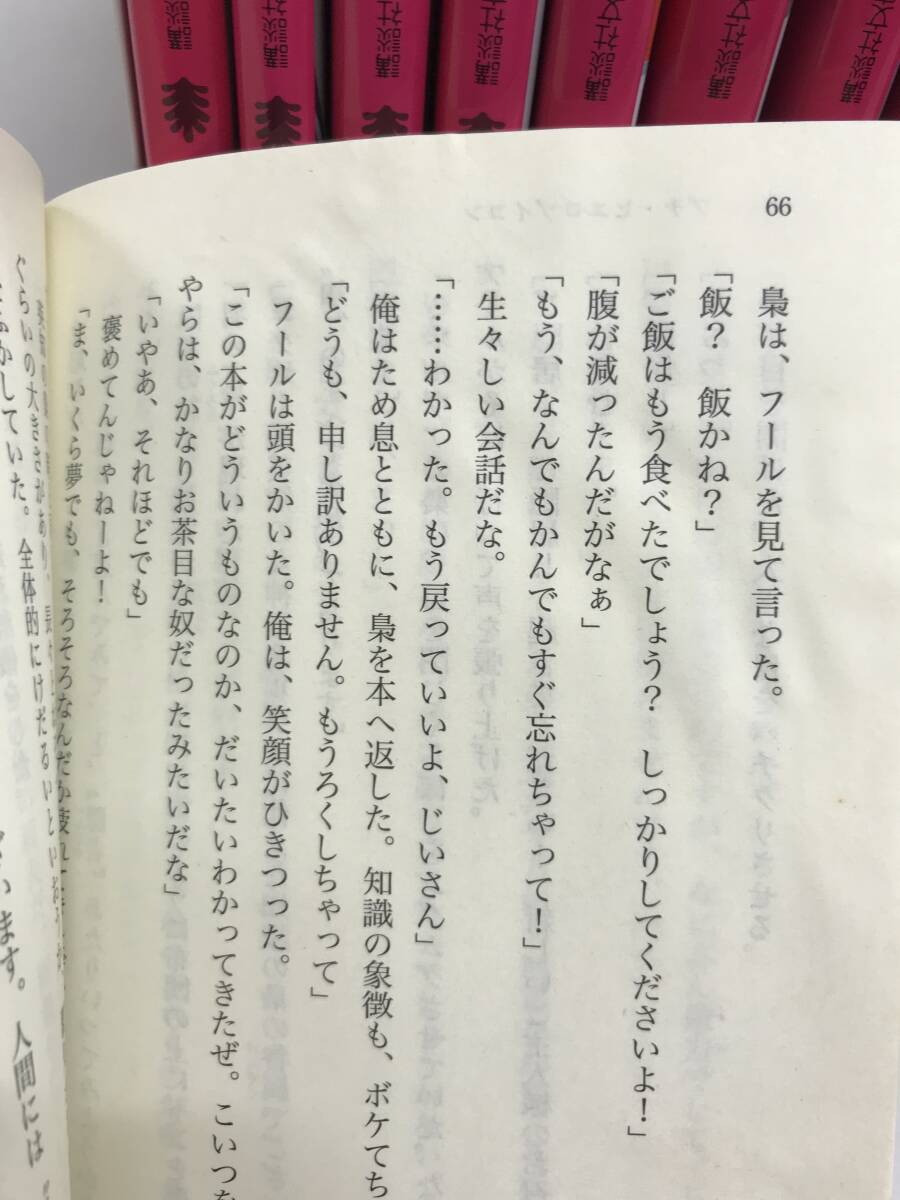 講談社文
講談社文
講談社文
講談社文
講談社文
講談社文
講談社文
66
梟は、フールを見て言った。
「飯？　飯かね？」
「ご飯はもう食べたでしょう？　しっかりしてくださいよ！」
「腹が減ったんだがなぁ」
「もう、なんでもかんでもすぐ忘れちゃって！」
生々しい会話だな。
「……わかった。もう戻っていいよ、じいさん」
俺はため息とともに、梟を本へ返した。知識の象徴も、ボケてち
「どうも、申し訳ありません。もうろくしちゃって」
フールは頭をかいた。俺は、笑顔がひきつった。
「この本がどういうものなのか、だいたいわかってきたぜ。こいつを
やらは、かなりお茶目な奴だったみたいだな」
「いやあ、それほどでも」
褒めてんじゃねーよ！
「ま、いくら夢でも、そろそろなんだか疲れ
ぐらいの大きさがあり、長
かしていた。全体的にけだるいといお
います。人間には